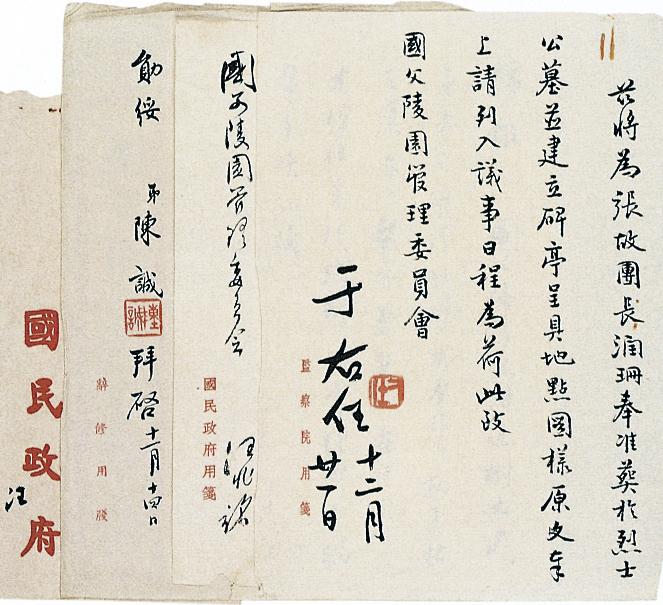 茲將為張故團長潤珊奉准葬於烈士
公墓並建立碑亭呈具地點圖樣原文奉
上請列入議事日程為荷此致
國父陵園管理委員會
于右任
十二月
廿一日
監察院用箋
國父陵園管理委員會
汪兆銘
國民政府用箋
勛綏
弟陳誠拜啓十一月十四日
辭修用牋
國民政府
汪